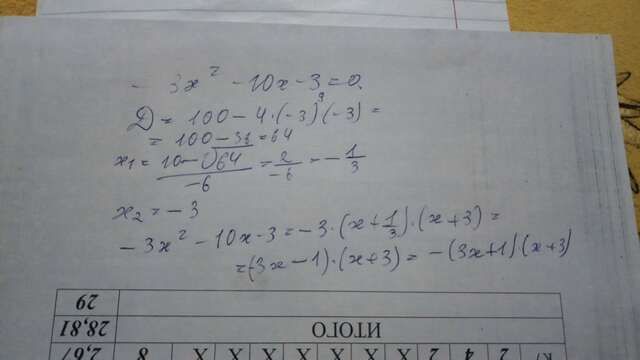 - 3x² - 10x - 3 = 0.
D = 100 - 4·(-3)·(-3) =
= 100 - 36 = 64
x₁ = (10 - √64)/(-6) = 2/(-6) = - 1/3
x₂ = - 3
- 3x² - 10x - 3 = - 3·(x + 1/3)·(x + 3) =
= (-3x - 1)·(x + 3) = -(3x + 1)(x + 3)
29
28,81 ИТОГО
2,67 8 X X X X X X X 2 4 2